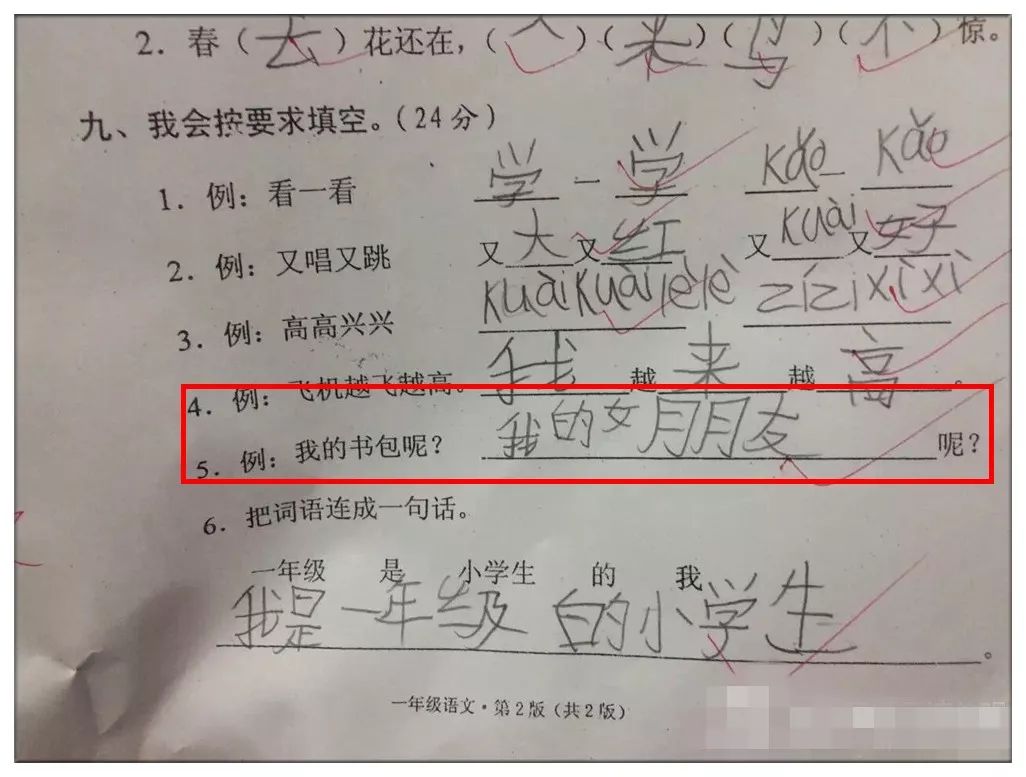 2. 春（去）花还在，（人）（来）（鸟）（不）惊。
九、我会按要求填空。（24分）
1. 例：看一看 学一学 kǎo一kǎo
2. 例：又唱又跳 又大又红 又kuài又好
3. 例：高高兴兴 kuàikuàilèlè zǐzǐxìxì
4. 例：飞机越飞越高。 我越来越高。
5. 例：我的书包呢？ 我的女朋友呢？
6. 把词语连成一句话。
一年级 是 小学生 的 我
我是一年级的小学生。
一年级语文·第2版（共2版）